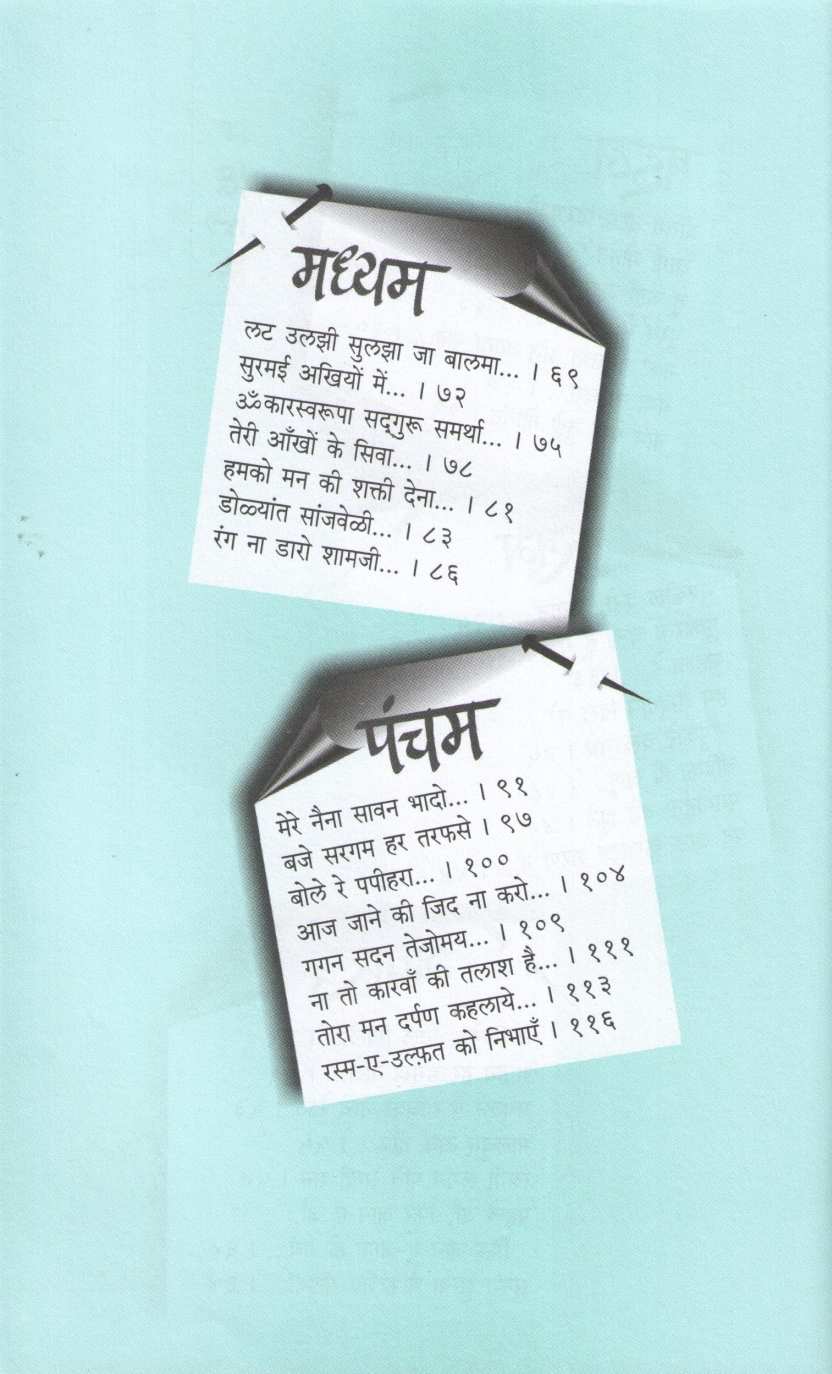 मध्यम
लट उलझी सुलझा जा बालमा... । ६९
सुरमई अखियों में... । ७२
ॐकारस्वरूपा सद्‌गुरू समर्था... । ७५
तेरी आँखों के सिवा... । ७८
हमको मन की शक्ती देना... । ८१
डोळ्यांत सांजवेळी... । ८३
रंग ना डारो शामजी... । ८६
पंचम
मेरे नैना सावन भादो... । ९१
बजे सरगम हर तरफसे । ९७
बोले रे पपीहरा... । १००
आज जाने की जिद ना करो... । १०४
गगन सदन तेजोमय... । १०९
ना तो कारवाँ की तलाश है... । १११
तोरा मन दर्पण कहलाये... । ११३
रस्म-ए-उल्फ़त को निभाएँ । ११६